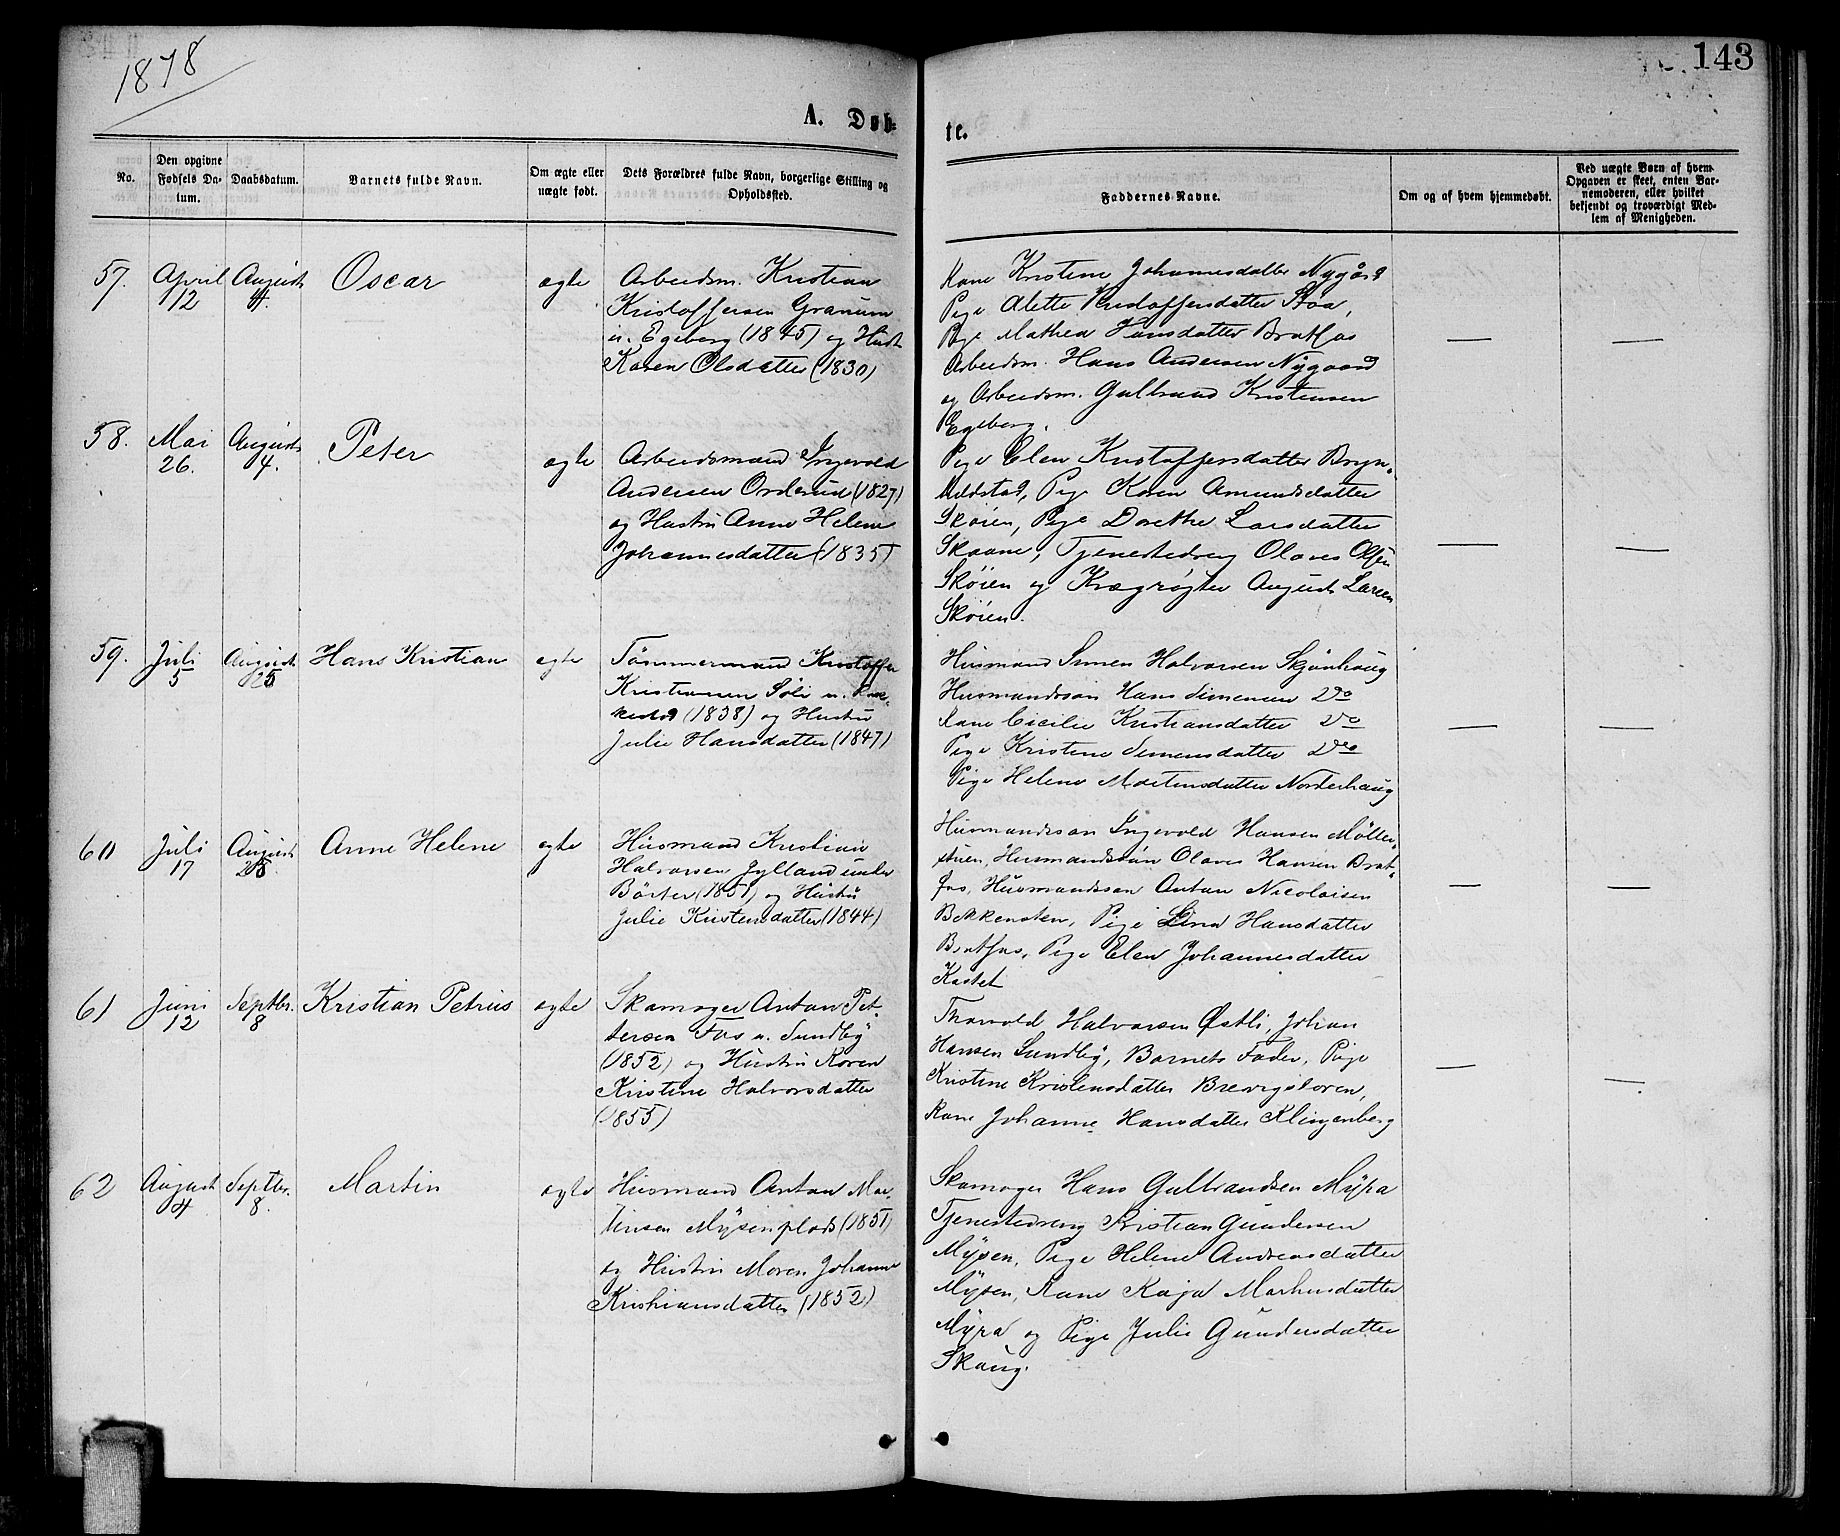 1878
143
A. Døb-
te.
No.
Den opgivne Fødsels Da-tum.
Daabsdatum.
Barnets fulde Navn.
Om ægte eller uægte født.
Dets Forældres fulde Navn, borgerlige Stilling og Opholdssted.
Faddernes Navne.
Om og af hvem hjemmedøbt.
Ved uægte Børn af hvem Opgaven er skeet, enten Bar-nemoderen, eller hvilket bekjendt og troværdigt Med-lem af Menigheden.
57. April 12 August 4. Oscar ægte
Arbeidsm. Kristian
Kristoffersen Granum
u. Egeberg (1845) og Hust.
Karen Olsdatter (1830)
Kone Kristine Johannesdatter Nygård
Pige Alette Kristoffersdatter Stoa,
Pige Mathea Hansdatter Bratfos
Arbeidsm. Hans Andersen Nygaard
og Arbeidsm. Gulbrand Kristensen
Egeberg.
58. Mai 26. August 4. Peter ægte
Arbeidsmand Ingevold
Andersen Orderud (1827)
og Hustru Anne Helene
Johannesdatter (1835)
Pige Elen Kristoffersdatter Bryn-
Pige Karen Amundsdatter
Skøien, Pige Dorethe Larsdatter
Skaane, Tjenestedreng Olaves Olsen
Skøien og Krægrøgter August Larsen
Skøien.
59. Juli 5 August 25 Hans Kristian ægte
Tømmermand Kristoffer
Kristiansen Søli u.
(1838) og Hustru
Julie Hansdatter (1847)
Husmand Simen Halvorsen Skjønhaug
Husmandssøn Hans Simensen Do
Kone Cicilie Kristiansdatter Do
Pige Kristine Simensdatter Do
Pige Helene Mortensdatter Norderhaug
60 Juli 17 August 25. Anne Helene ægte
Husmand Kristian
Halvorsen Jylland under
Börter (1851) og Hustru
Julie Kristensdatter (1844)
Husmandssøn Ingevold Hansen Möller-
stuen, Husmandssøn Olaves Hansen Brat-
fos, Husmandssøn Anton Nicolaisen
Bekkensten, Pige Lina Hansdatter
Bratfos, Pige Elen Johannesdatter
Kastet
61 Juni 12 Septbr. 8 Kristian Petrus ægte
Skomager Anton Pet-
tersen Fos u. Sundby
(1852) og Hustru Karen
Kristine Halvorsdatter
(1855)
Thorvald Halvorsen Østli, Johan
Hansen Sundby, Barnets Fader, Pige
Kristine Kristensdatter
Kone Johanne Hansdatter Klingenberg
62 August 4 Septbr. 8. Martin ægte
Husmand Anton Mar-
tinsen Mysenplads (1851)
og Hustru Maren Johanne
Kristiansdatter (1852)
Skomager Hans Gulbrandsen Myra
Tjenestedreng Kristian Gundersen
Mysen, Pige Helene Andreasdatter
Mysen, Kone Kaja Markusdatter
Myra og Pige Julie Gundersdatter
Skaug.